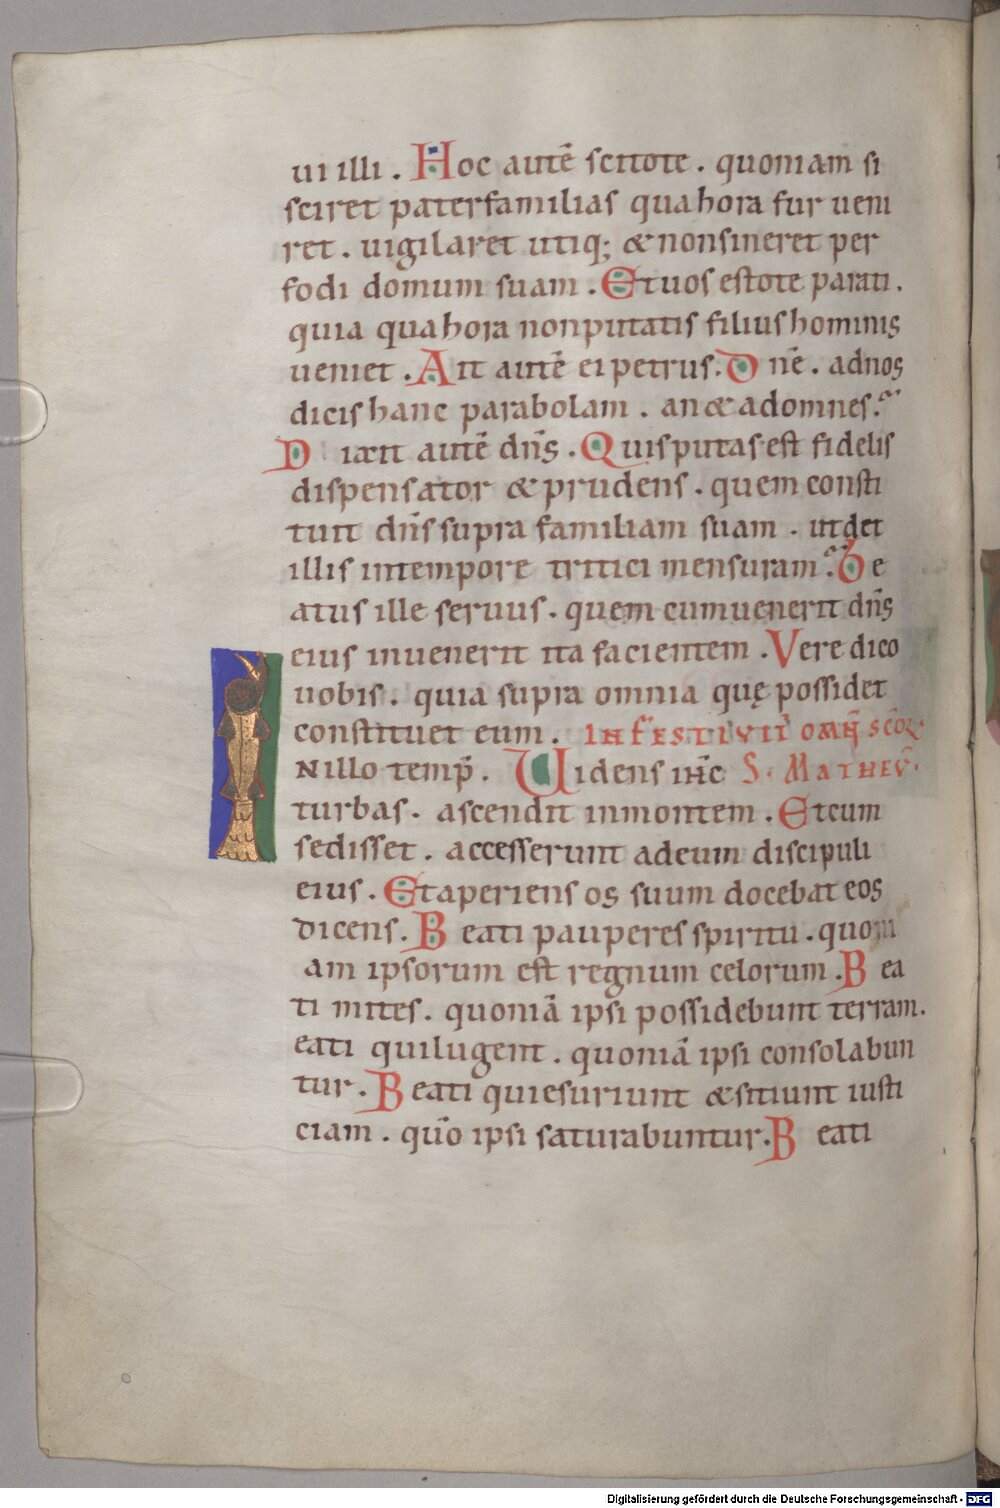 ui illi . Hoc autē scitote . quoniam si
sciret paterfamilias qua hora fur ueni
ret . uigilaret utiq; & non sineret per
fodi domum suam . Et uos estote parati .
quia qua hora non putatis filius hominis
ueniet . Ait autē ei petrus . Dnē . ad nos
dicis hanc parabolam . an & ad omnes .
Dixit autē dn̄s . Quis putas est fidelis
dispensator & prudens . quem consti
tuit dn̄s supra familiam suam . ut det
illis in tempore tritici mensuram . Be
atus ille seruus . quem cum uenerit dn̄s
eius inuenerit ita facientem . Vere dico
uobis . quia supra omnia quę possidet
constituet eum . IN FESTIVIT OMN̄ SC̄OR
INillo temp̄ . Uidens ih̄c S. MATHEV̄ .
turbas . ascendit in montem . Et cum
sedisset . accesserunt ad eum discipuli
eius . Et aperiens os suum docebat eos
dicens . Beati pauperes spiritu . quoni
am ipsorum est regnum celorum . Bea
ti mites . quoniā ipsi possidebunt terram .
eati qui lugent . quoniā ipsi consolabun
tur . Beati qui esuriunt & sitiunt iusti
ciam . quō ipsi saturabuntur . Beati
Digitalisierung gefördert durch die Deutsche Forschungsgemeinschaft - DFG